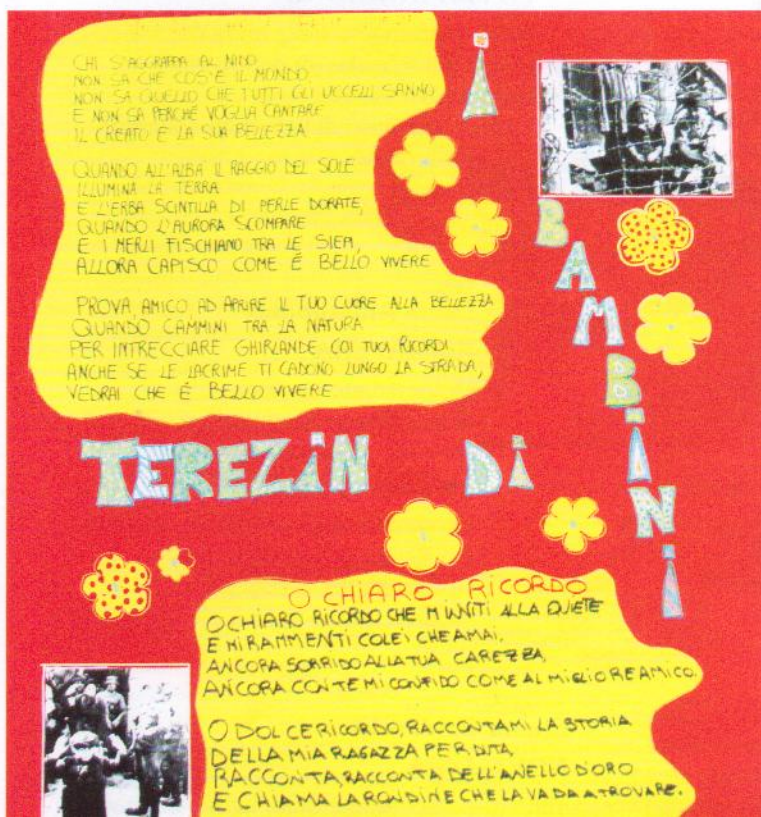 CHI S'AGGRAPPA AL NIDO
NON SA CHE COS'È IL MONDO,
NON SA QUELLO CHE TUTTI GLI UCCELLI SANNO
E NON SA PERCHÉ VOGLIA CANTARE
IL CREATO E LA SUA BELLEZZA.
QUANDO ALL'ALBA IL RAGGIO DEL SOLE
ILLUMINA LA TERRA
E L'ERBA SCINTILLA DI PERLE DORATE,
QUANDO L'AURORA SCOMPARE
E I MERLI FISCHIANO TRA LE SIEPI,
ALLORA CAPISCO COME É BELLO VIVERE
PROVA, AMICO AD APRIRE IL TUO CUORE ALLA BELLEZZA
QUANDO CAMMINI TRA LA NATURA
PER INTRECCIARE GHIRLANDE COI TUOI RICORDI.
ANCHE SE LE LACRIME TI CADONO LUNGO LA STRADA,
VEDRAI CHE É BELLO VIVERE
I
BAMBINI
DI
TEREZIN
O CHIARO RICORDO
O CHIARO RICORDO CHE M'UNITI ALLA QUIETE
E MI RAMMENTI COLEI CHE AMAI,
ANCORA SORRIDO ALLA TUA CAREZZA,
ANCORA CON TE MI CONFIDO COME AL MIGLIORE AMICO.
O DOLCE RICORDO, RACCONTAMI LA STORIA
DELLA MIA RAGAZZA PERDUTA,
RACCONTA, RACCONTA DELL'ANELLO D'ORO
E CHIAMA LA RONDINE CHE LA VADA A TROVARE.